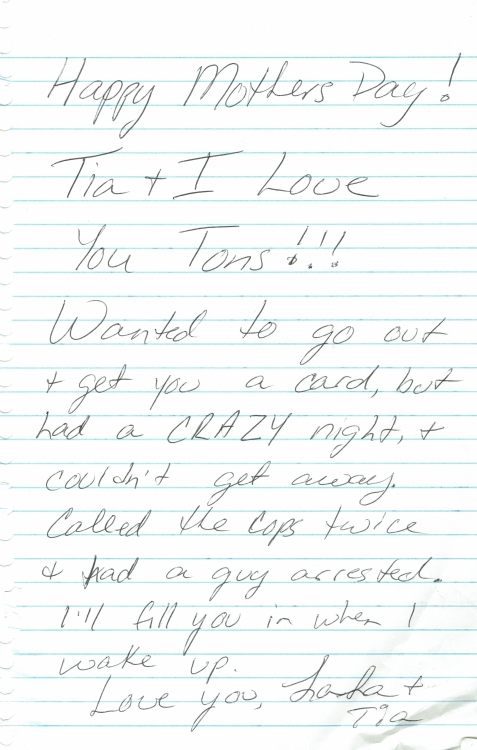 Happy Mothers Day!
Tia + I Love
You Tons!!!
Wanted to go out
+ get you a card, but
had a CRAZY night, +
couldn't get away.
Called the cops twice
+ had a guy arrested.
I'll fill you in when I
wake up.
Love you, +
Tia